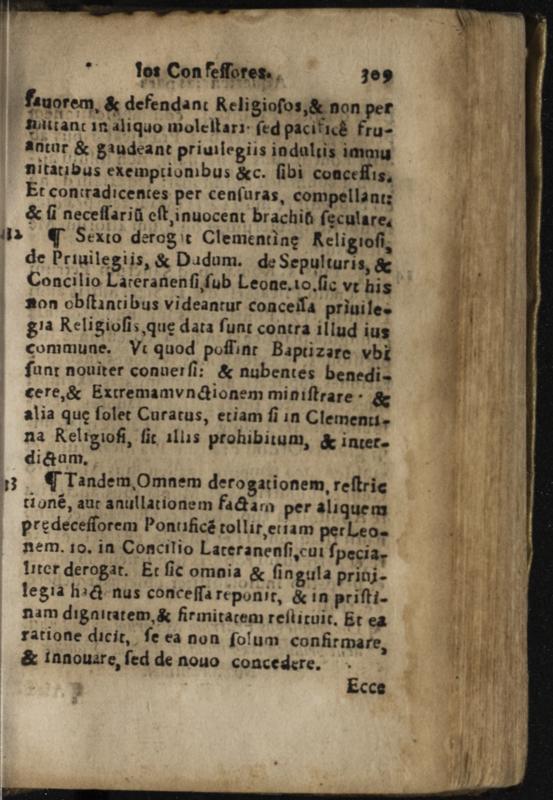 los Confessores. 309
fauorem, & defendant Religiosos, & non per
mittant in aliquo molestari· sed pacificê fru-
antur & gaudeant priuilegiis indultis immu
nitatibus exemptionibus &c. sibi concessis.
Et contradicentes per censuras, compellant:
& si necessariũ est, inuocent brachiũ sęculare.
¶ Sexto derogat Clementìnę Religiosi,
de Priuilegiis, & Dudum. de Sepulturis, &
Concilio Lateranensi, sub Leone. 10. sic vt his
non obstantibus videantur concessa priuile-
gia Religiosis, quę data sunt contra illud ius
commune. Vt quod possint Baptizare vbi
sunt nouiter conuersi: & nubentes benedi-
cere, & Extremamvnctionem ministrare· &
alia quę solet Curatus, etiam si in Clementi-
na Religiosi, sit illis prohibitum, & inter-
dictum.
¶ Tandem, Omnem derogationem, restric
tionẽ, aut anullationem factam per aliquem
prędecessorem Pontificẽ tollit, etiam per Leo-
nem. 10. in Concilio Lateranensi, cui specia-
liter derogat. Et sic omnia & singula priui-
legia hact nus concessa reponit, & in pristi-
nam dignitatem, & firmitatem restituit. Et ea
ratione dicit, se ea non solum confirmare,
& innouare, sed de nouo concedere.
Ecce